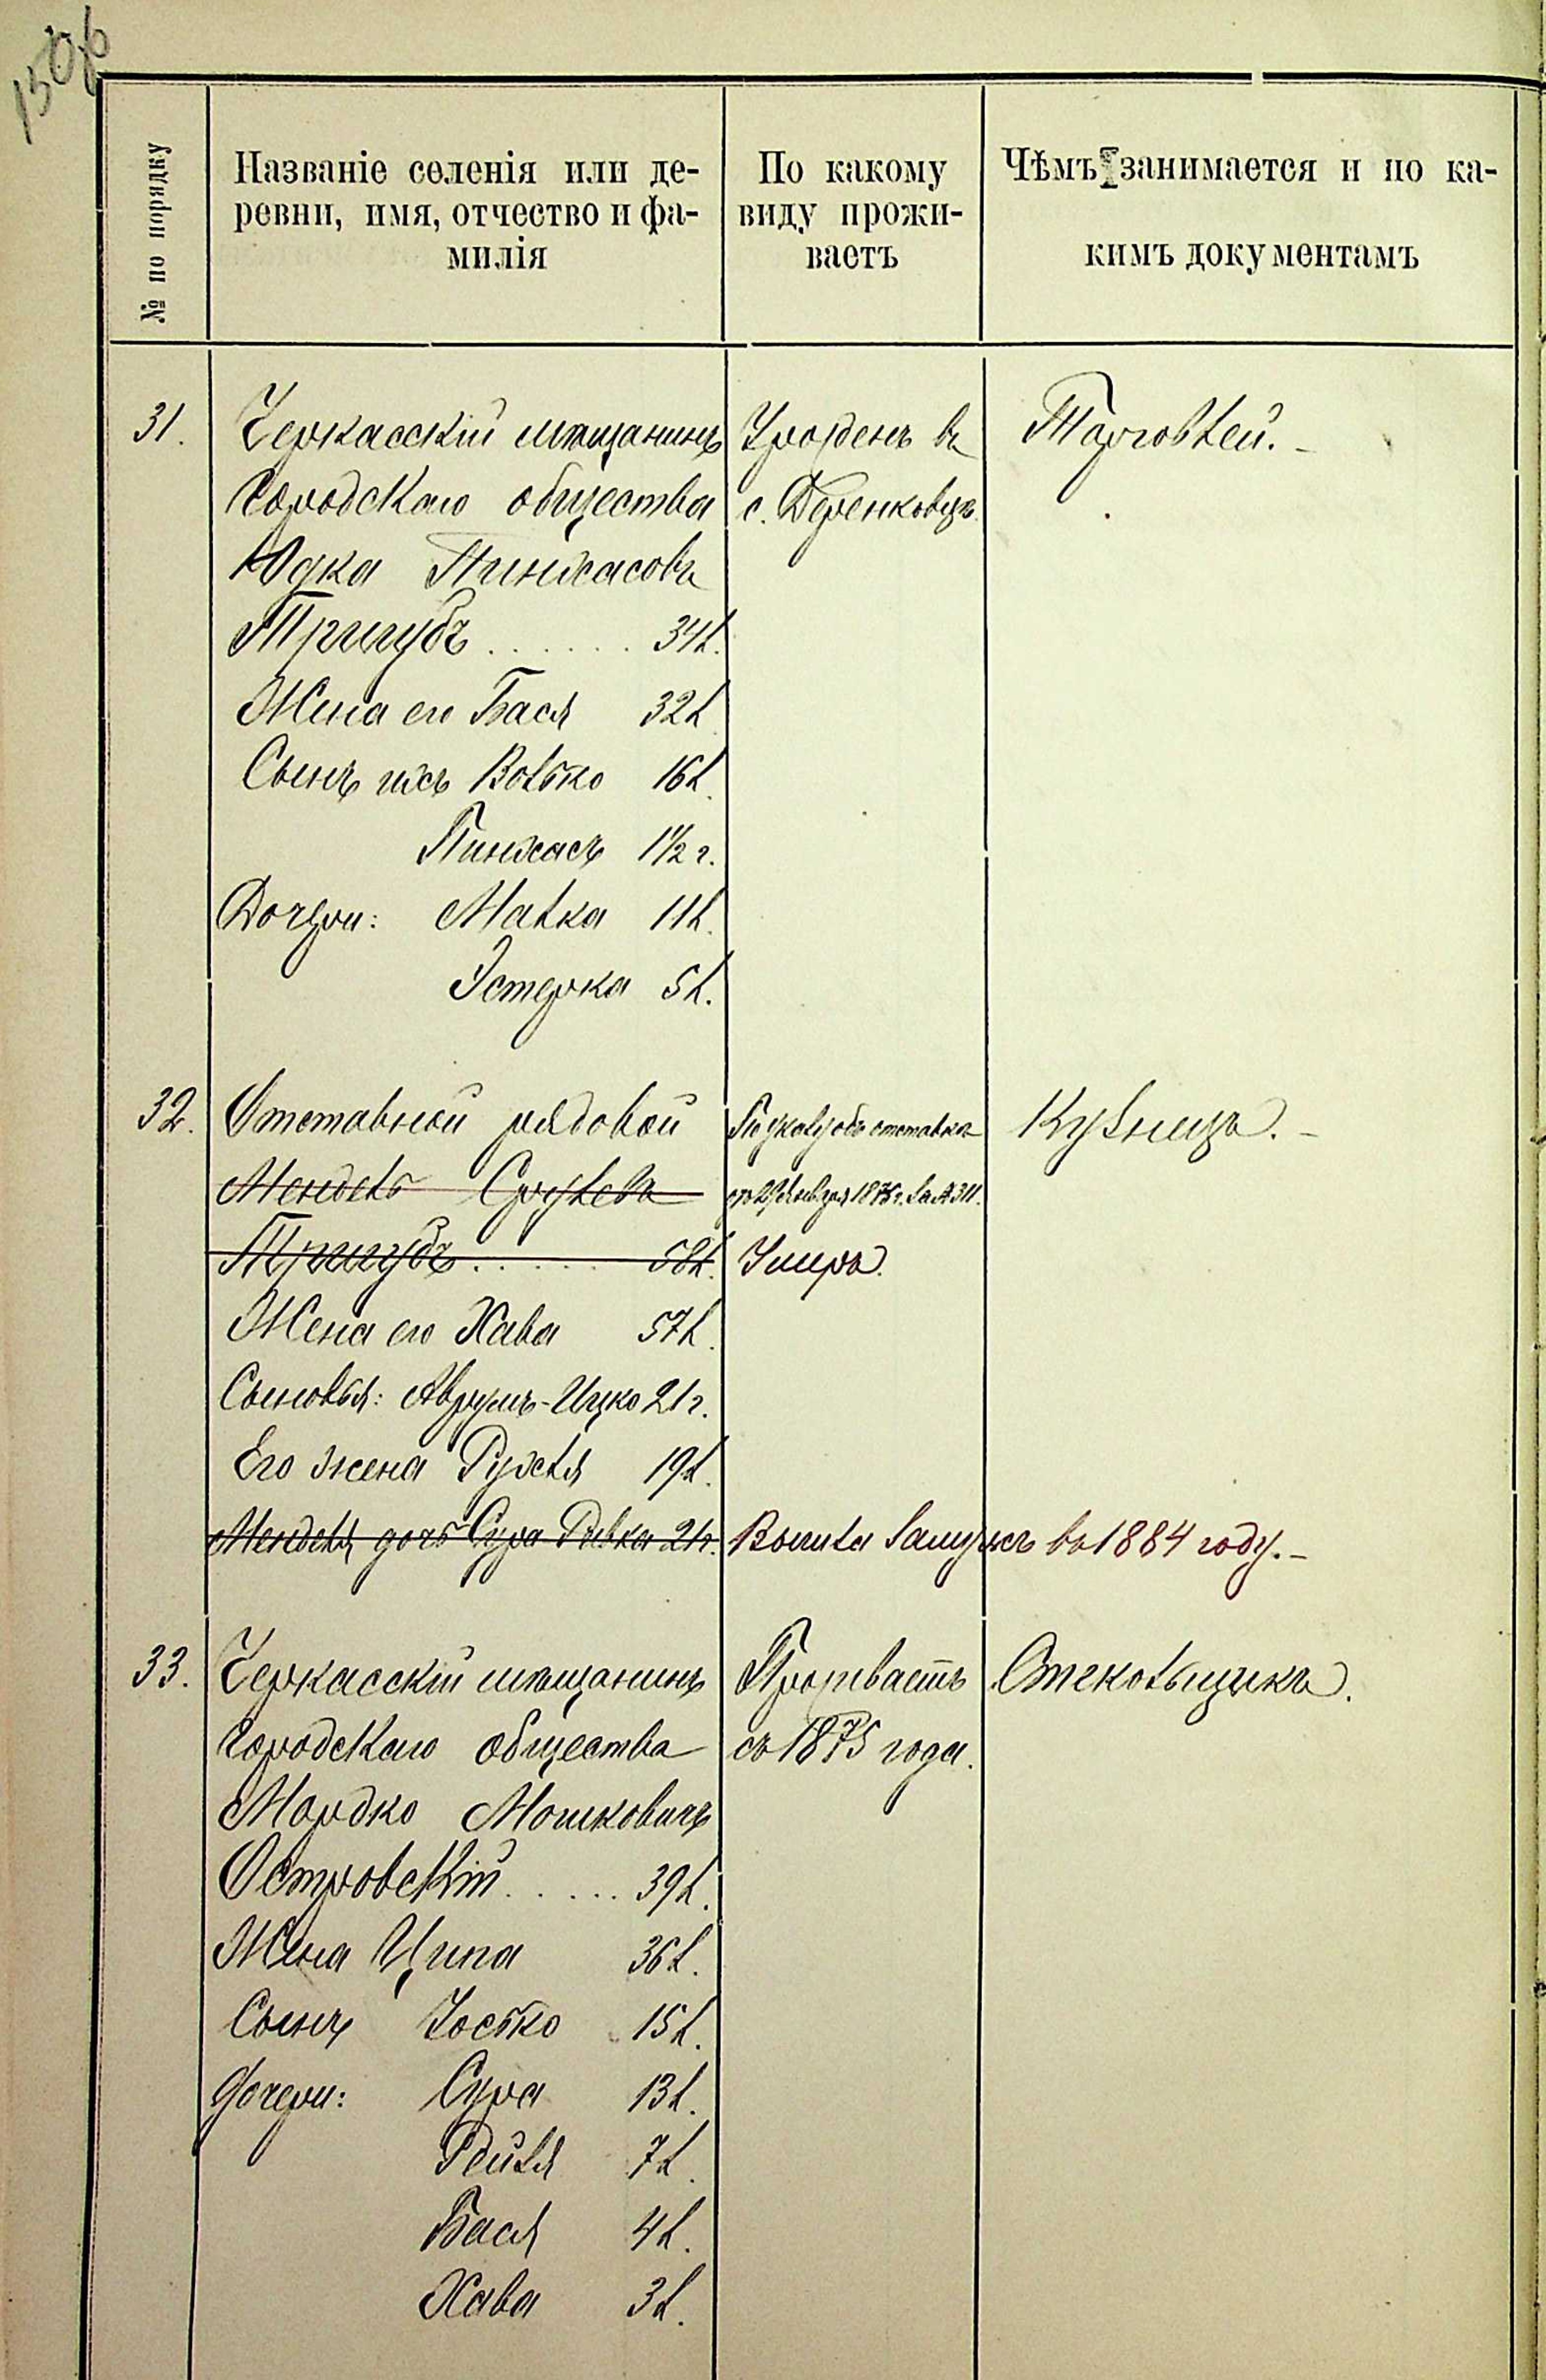 150б
№ по порядку
Названіе селенія или де-
ревни, имя, отчество и фа-
милія
По какому
виду прожи-
ваетъ
Чѣмъ занимается и по ка-
кимъ документамъ
31.
Черкасскій мѣщанинъ
городскаго общества
Юдка Пинхасовъ
Тригубъ . . . . . . 34 л.
Жена его Бася 32 л.
Сынъ ихъ Волько 16 л.
Пинхасъ 1½ г.
Дочери: Малка 11 л.
Эстерка 5 л.
Урожденъ въ
с. Деренковцѣ.
Торговлей. -
32.
Отставной рядовой
Мендель Срулевъ
Тригубъ . . . . . . 58 л.
Жена его Хава 57 л.
Сыновья: Аврумъ-Ицко 21 г.
Его жена Рухля 19 л.
Менделя дочь Сура Ривка 21 г.
По указу объ отставкѣ
отъ 29 Января 1875 г. за № 311.
Умеръ.
Вышла замужъ въ 1884 году. -
Кузнецъ. -
33.
Черкасскій мѣщанинъ
городскаго общества
Мордко Мошковичъ
Островскій . . . . . 39 л.
Жена Ципа 36 л.
Сынъ Іосько 15 л.
Дочери: Сура 13 л.
Рейзя 7 л.
Бася 4 л.
Хава 3 л.
Проживаетъ
съ 1875 года.
Стекольщикъ.